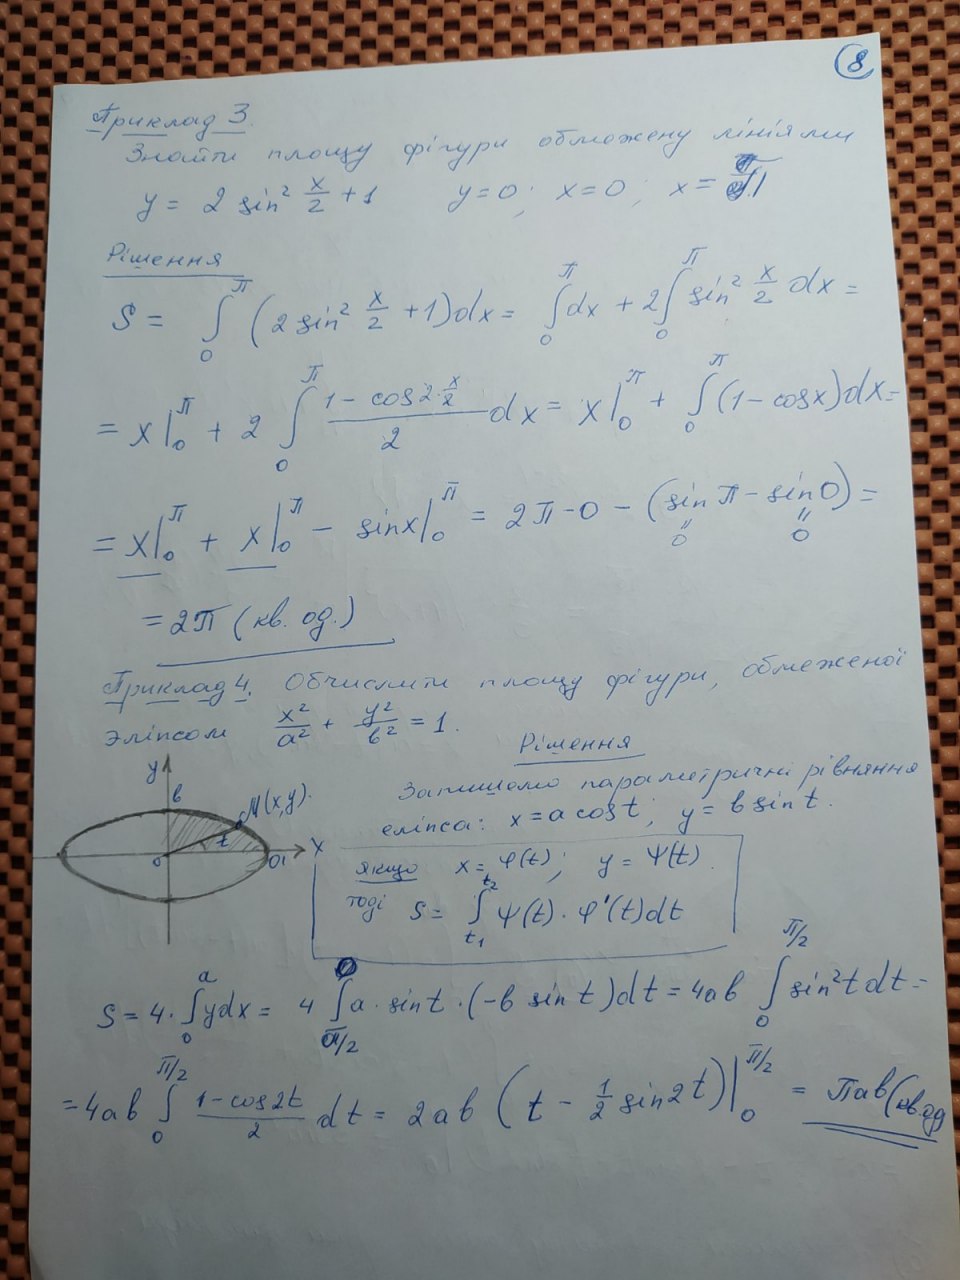 8
Приклад 3.
Знайти площу фігури обмежену лініями
y = 2 sin² x/2 + 1 y=0; x=0; x=π
Рішення
S = ∫₀^π (2 sin² x/2 + 1)dx = ∫₀^π dx + 2∫₀^π sin² x/2 dx =
= x|₀^π + 2 ∫₀^π (1 - cos 2·x/2)/2 dx = x|₀^π + ∫₀^π (1 - cosx)dx =
= x|₀^π + x|₀^π - sinx|₀^π = 2π - 0 - (sin π - sin 0) =
0 0
= 2π (кв. од.)
Приклад 4. Обчислити площу фігури, обмеженої
эліпсом x²/a² + y²/b² = 1.
Рішення
Запишемо параметричні рівняння
еліпса: x = a cos t; y = b sin t.
y b M(x,y). t o a x
якщо x = φ(t); y = ψ(t).
тоді S = ∫_{t₁}^{t₂} ψ(t) · φ'(t)dt
S = 4 · ∫₀^a ydx = 4 ∫_{π/2}^0 a · sin t · (-b sin t)dt = 4ab ∫₀^{π/2} sin²t dt =
= 4ab ∫₀^{π/2} (1 - cos 2t)/2 dt = 2ab (t - 1/2 sin 2t)|₀^{π/2} = πab (кв.од